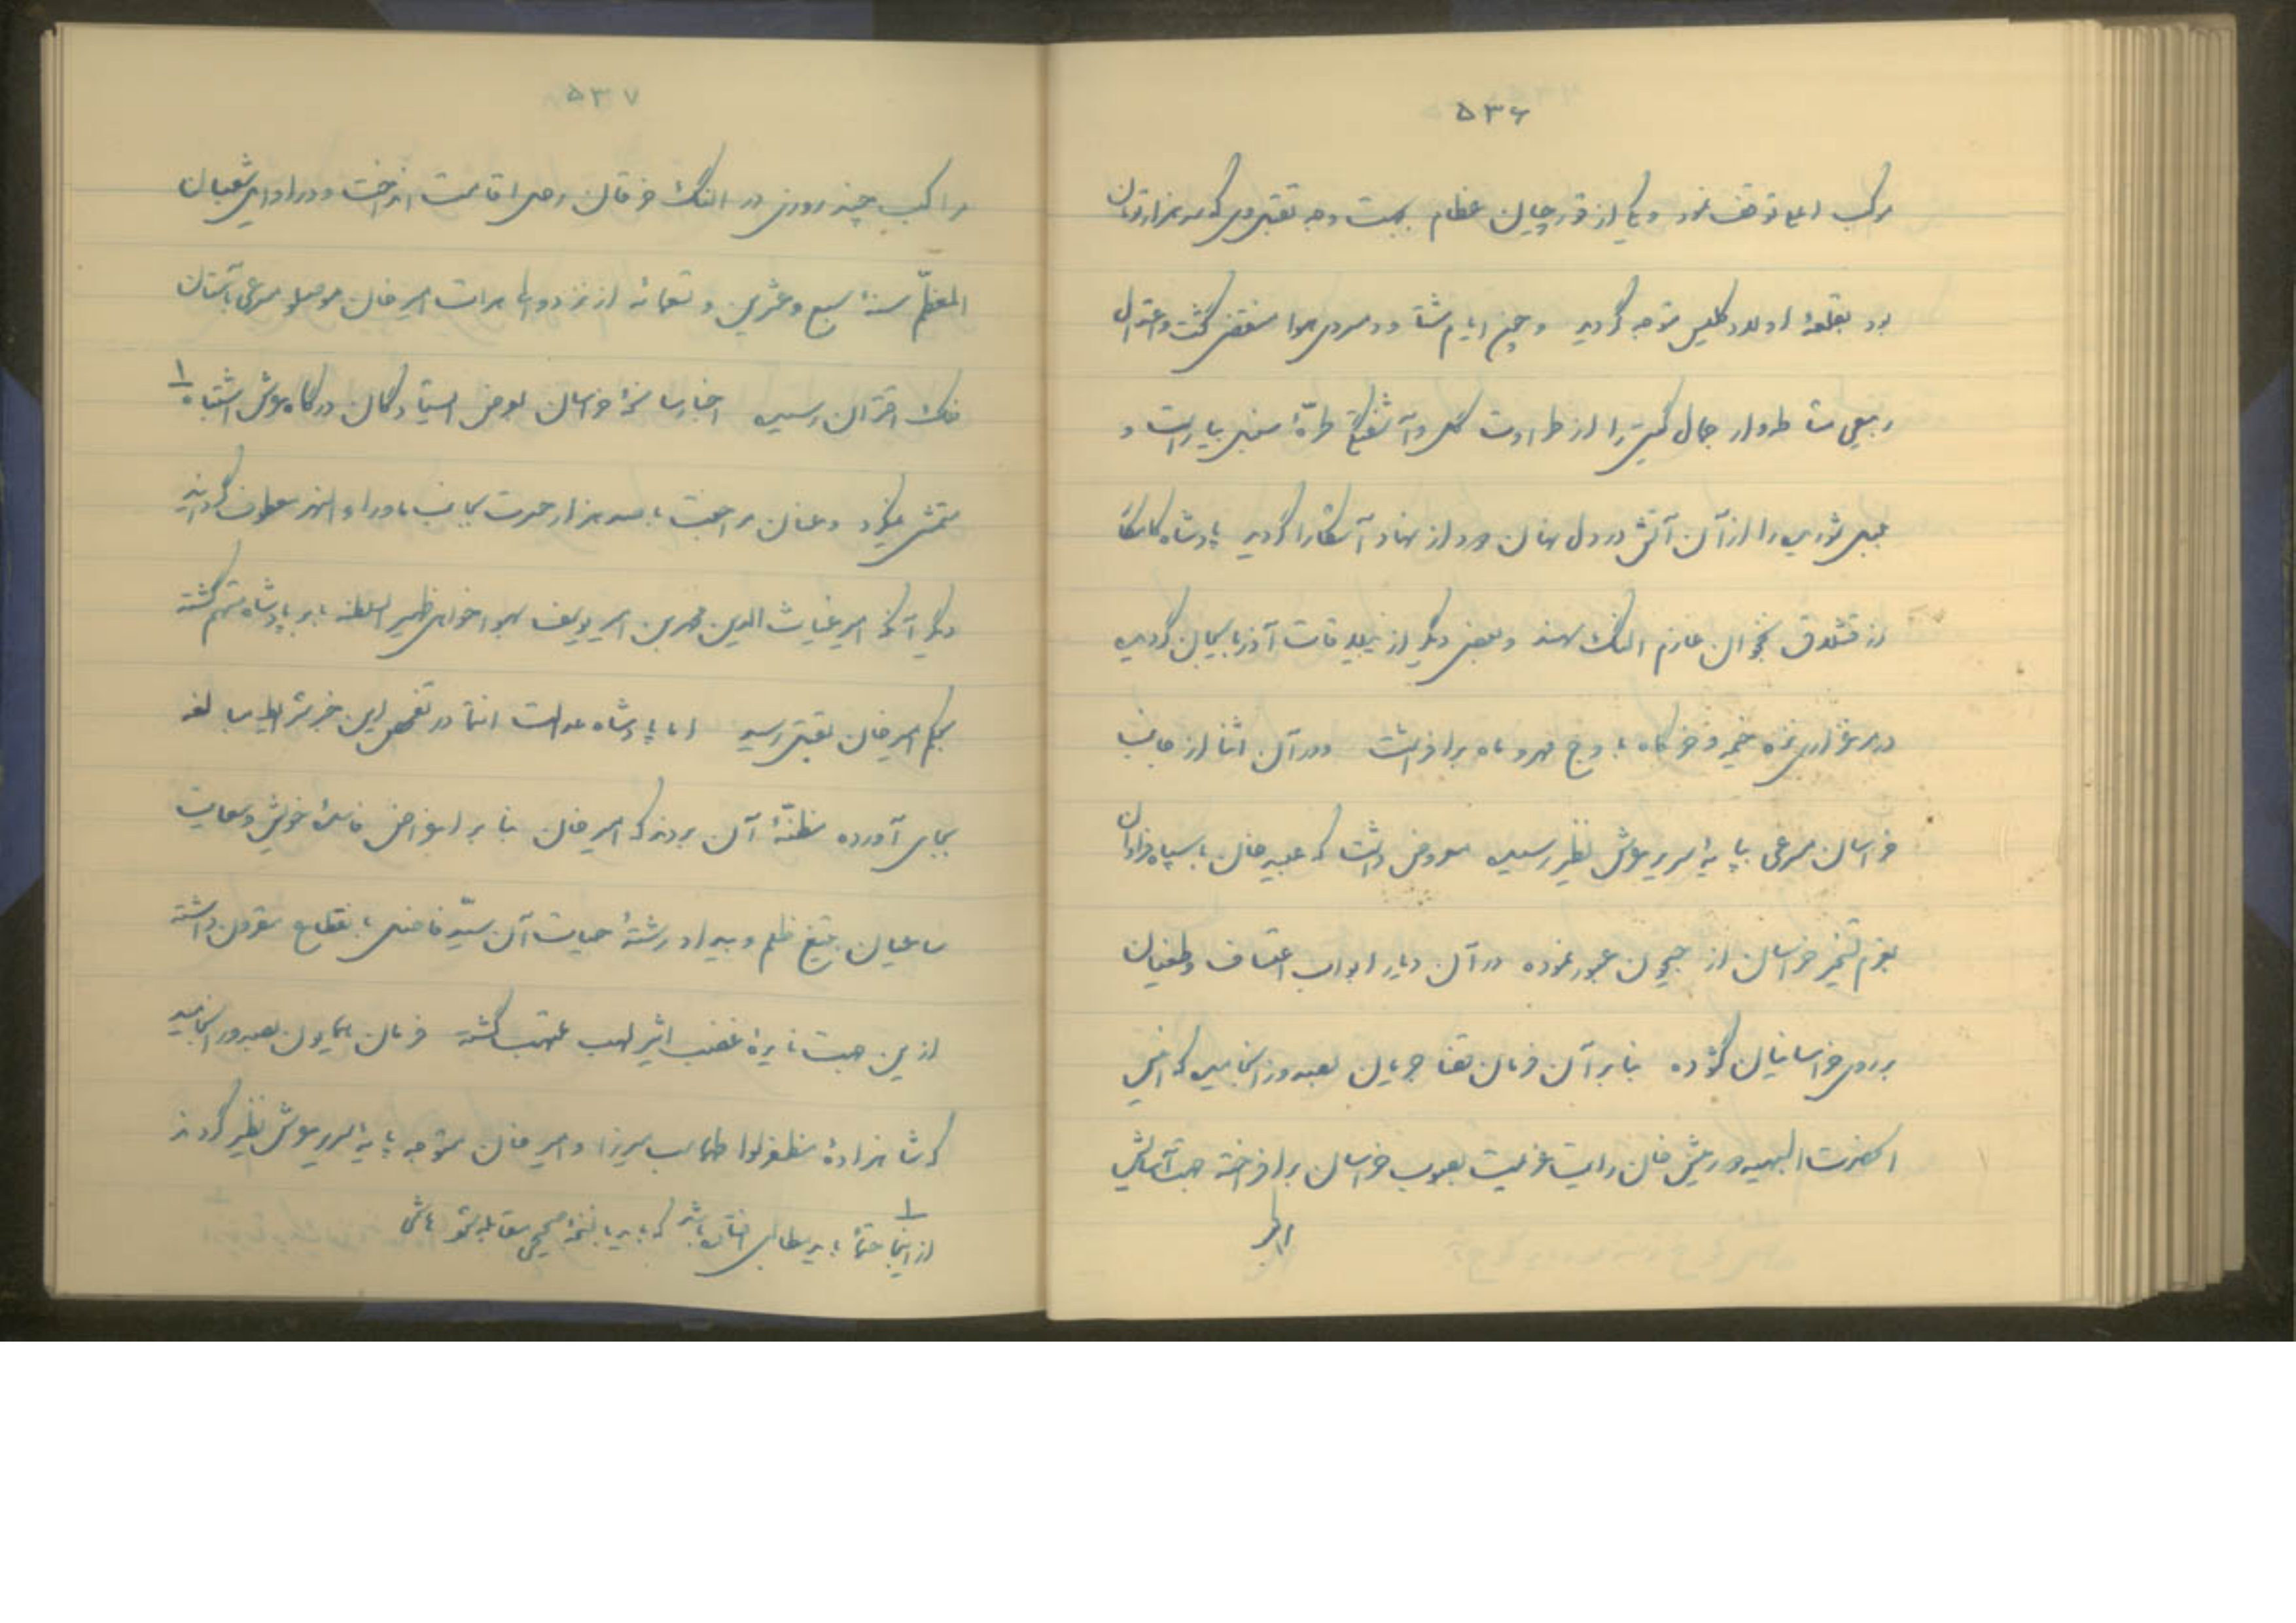 ۵۳۶
موکب اعلی توقف نمود و یکی از قورچیان عظام بجهت وجه تقبلی که سه هزار تومان
بود بقلعهٔ متوجه گردید و چون ایام شتا و سردی هوا منقضی گشت و اعتدال
ربیعی جمال گیتی را از طراوت گل و آشفتگی طرّهٔ سنبل بیاراست و
را از آن آتش در دل نهان بود از نهاد آشکارا گردید پادشاه کامکار
از قشلاق نخجوان عازم النگ سهند و بعضی دیگر از ییلاقات آذربایجان گردیده
در مرغزاری نزه خیمه و خرگاه باوج مهر و ماه برافراشت و در آن اثنا از جانب
خراسان مسرعی بپایهٔ سریر عرش نظیر رسیده معروض داشت که عبید خان با سپاه فراوان
بعزم تسخیر خراسان از جیحون عبور نموده در آن دیار ابواب اعتساف و طغیان
بر روی خراسانیان گشوده بنابرآن فرمان قضا جریان بصدور انجامید که اخی
سلطان و دورمیش خان رایت عزیمت بصوب خراسان برافراخته جهت آسایش
۵۳۷
مراکب چند روزی در النگ خرقان رحل اقامت انداخت و در اواخر شعبان
المعظّم سنهٔ سبع و عشرین و تسعمائه از نزد والی هرات امیر خان موصلو مسرعی بآستان
فلک اقتران رسیده اخبار سانحهٔ خراسان بعرض ایستادگان درگاه عرش اشتباه ۱
متمشی نگردد و عنان مراجعت با صد هزار حسرت بجانب ماوراء النهر معطوف گردانید
دیگر آنکه امیر غیاث الدین محمد بن امیر یوسف بهواخواهی ظهیر السلطنه بابر پادشاه متهم گشته
بحکم امیر خان بقتل رسید اما پادشاه عدالت انتما در تفحص این خبر شرایط مبالغه
بجای آورده مظنّهٔ آن بردند که امیر خان بنابر اغراض فاسدهٔ خویش و سعایت
ساعیان بتیغ ظلم و بیداد رشتهٔ حیات آن سیّد فاضل بانقطاع مقرون داشته
از این جهت نایرهٔ غضب اثیر لهب ملتهب گشته فرمان همایون بصدور انجامید
که شاهزادهٔ مظفر لوا طهماسب میرزا و امیر خان متوجه پایهٔ سریر عرش نظیر گردند
۱
از اینجا حتماً باید مطالبی افتاده باشد که باید با نسخهٔ صحیحی مقابله شود